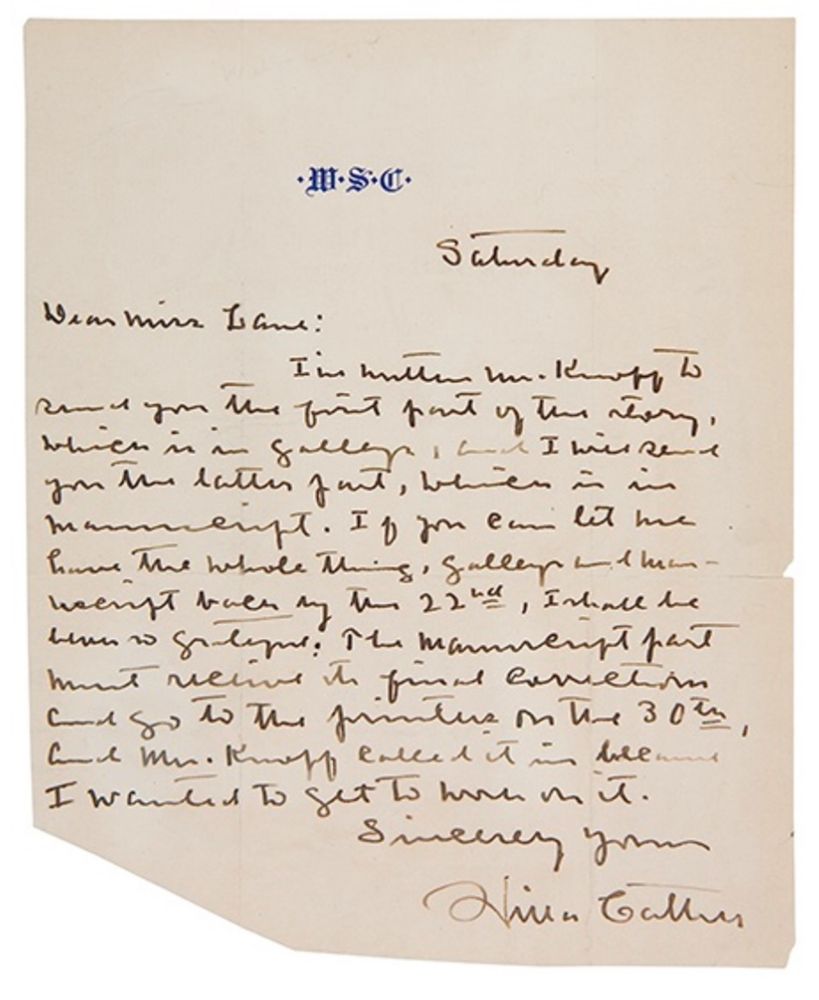 ·W·S·C·
Saturday
Dear Miss Lane:
I've written Mr. Knopf to
send you the first part of the story,
which is in galleys, and I will send
you the latter part, which is in
manuscript. If you can let me
have the whole thing, galleys and man-
uscript back by the 22nd, I shall be
ever so grateful. The manuscript part
must receive its final corrections
and go to the printers on the 30th,
and Mr. Knopf called it in because
I wanted to get to work on it.
Sincerely yours
Willa Cather